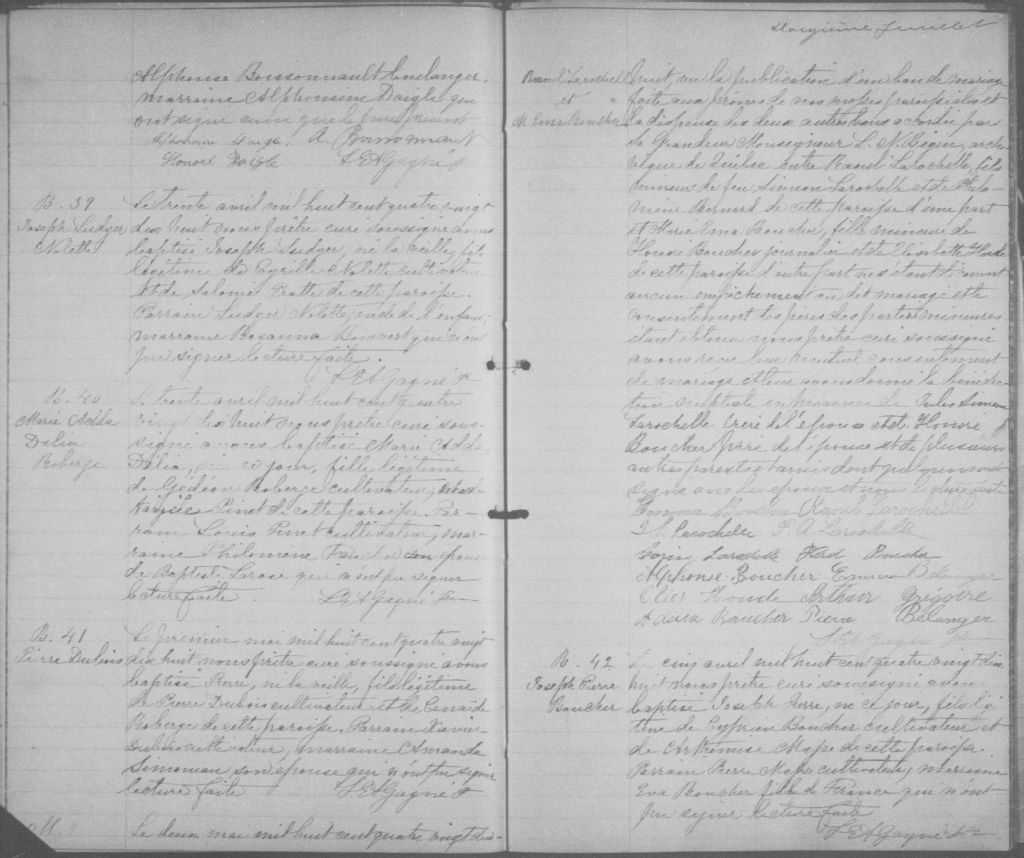 Alphonse Boissonnault boulanger,
marraine Alphonsine Daigle qui
ont signé ainsi que le père présent
A. Boissonnault
Honoré Daigle L E A Gagné Ptr
B. 39
Joseph Ludger
Nolette
Le trente avril mil huit cent quatre vingt
dix huit nous prêtre curé soussigné avons
baptisé Joseph Ludger, né la veille, fils
légitime de Cyrille Nolette cultivateur
et de Salomée de cette paroisse.
Parrain Ludger Nolette, oncle de l'enfant
marraine Rosanna Boisvert qui n'ont
pu signer lecture faite.
L E A Gagné Ptr
B. 40
Marie Adda
Délia
Roberge
Le trente avril mil huit cent quatre
vingt dix huit nous prêtre curé sous-
signé avons baptisé Marie Adda
Délia, née ce jour, fille légitime
de Gédéon Roberge cultivateur, et de
Pinet de cette paroisse. Par-
rain Louis Pinet cultivateur, mar-
raine Philomène épouse
de Baptiste Larose qui n'ont pu signer
lecture faite. L E A Gagné Ptr
B. 41
Pierre Dubois
Le premier mai mil huit cent quatre vingt
dix huit nous prêtre curé soussigné avons
baptisé Pierre, né la veille, fils légitime
de Pierre Dubois cultivateur et de Zénaïde
Roberge de cette paroisse, Parrain Xavier
Dubois cultivateur, marraine Amanda
Simoneau son épouse qui n'ont pu signer
lecture faite L E A Gagné Ptr
M.
Le deux mai mil huit cent quatre vingt dix-
Douzième feuillet
Raoul Larochelle
et
M. Ema Boucher
huit, vu la publication d'un ban de mariage
faite aux prônes de nos messes paroissiales et
la dispense des deux autres bans accordée par
Sa Grandeur Monseigneur L. N. Bégin, arche-
vêque de Québec entre Raoul Larochelle, fils
mineur de feu Simeon Larochelle et de Philo-
mène Bernard de cette paroisse d'une part
et Marie Ema Boucher, fille mineure de
Honoré Boucher journalier et de Elisabeth Houde
de cette paroisse d'autre part ne s'étant découvert
aucun empêchement au dit mariage et le
consentement des pères des parties mineures
étant obtenu nous prêtre curé soussigné
avons reçu leur mutuel consentement
de mariage et leur avons donné la bénédic-
tion nuptiale en présence de Jules Simeon
Larochelle frère de l'époux et de Honoré
Boucher père de l'épouse et de plusieurs
autres parents et amis dont quelques uns ont
signé avec les époux et nous lecture faite
Emma Boucher Raoul Larochelle
J. S. Larochelle F. A. Larochelle
Larochelle Ferd Boucher
Alphonse Boucher Emma Bélanger
Houde Arthur Grégoire
Boucher Pierre Bélanger
L E A Gagné Ptr
B. 42
Joseph Pierre
Boucher
Le cinq avril mil huit cent quatre vingt dix
huit nous prêtre curé soussigné avons
baptisé Joseph Pierre, né ce jour, fils légi-
time de Cyprien Boucher cultivateur et
de Arthémise Mape de cette paroisse.
Parrain Pierre Mape cultivateur, marraine
Eva Boucher fille de France qui n'ont
pu signer lecture faite
L E A Gagné Ptr